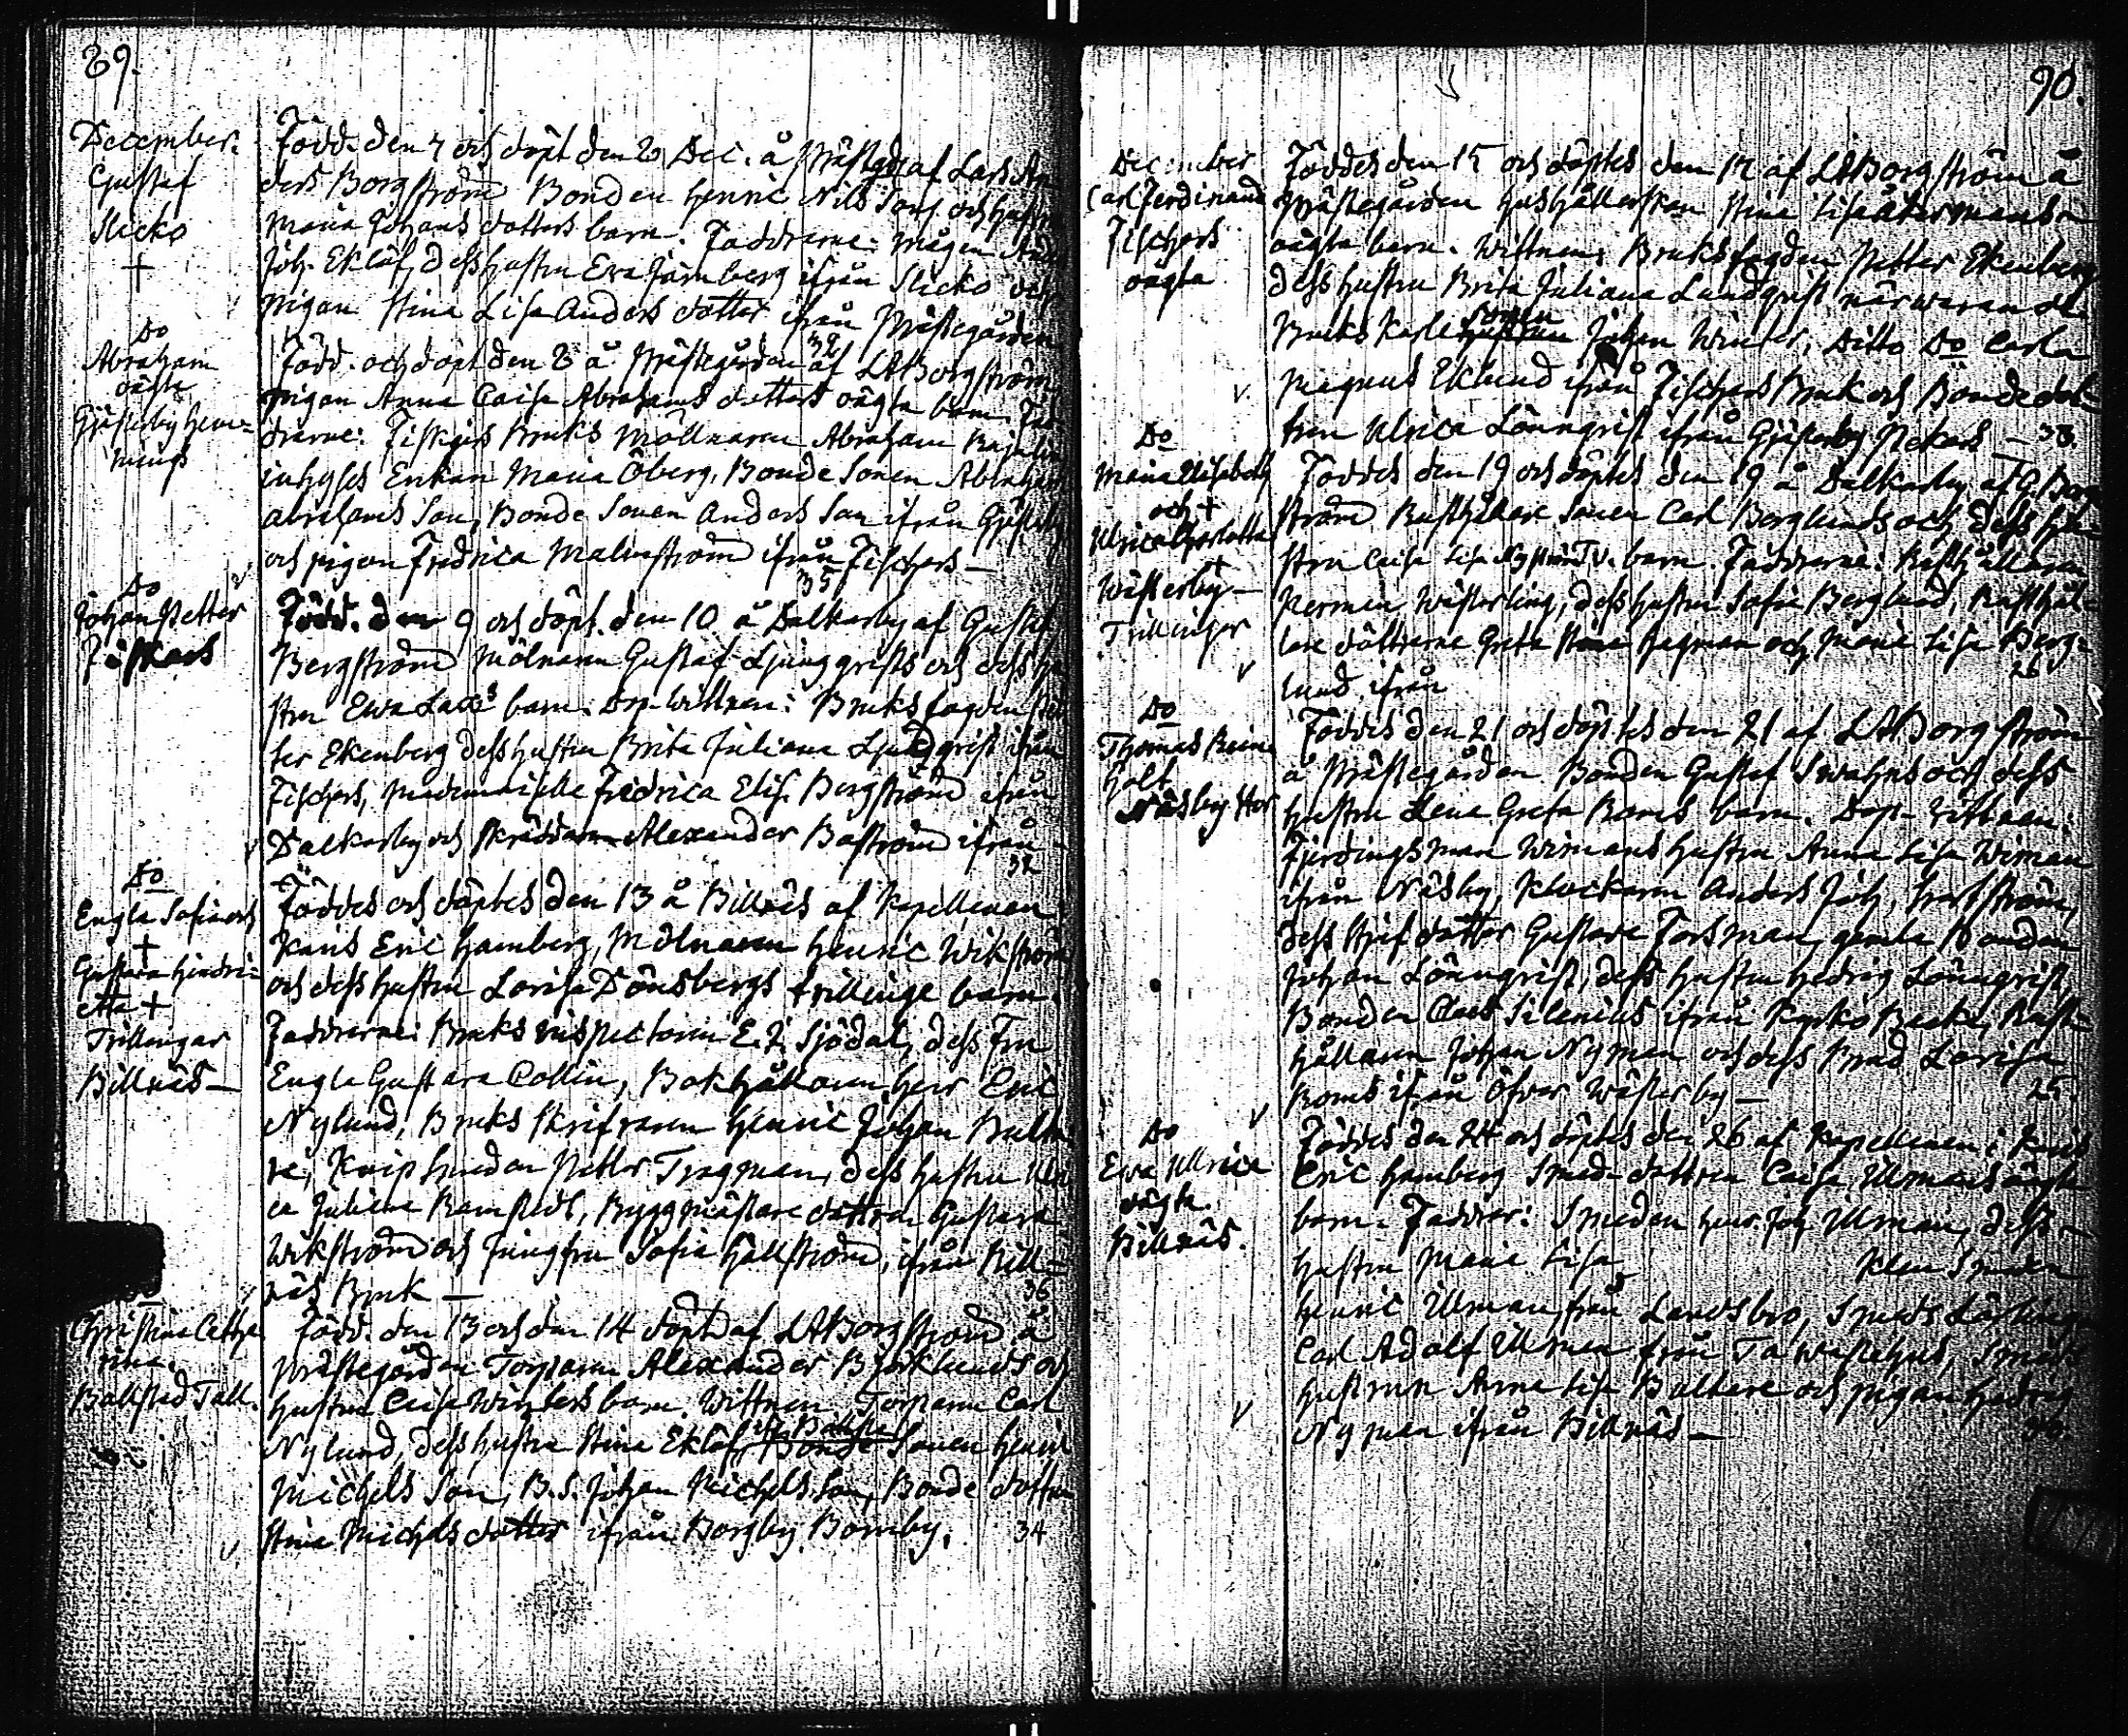 89.
December.
Gustaf
Slicko
+
Född. den 7 och döpt den 8 Dec. å Prästgdn af Lars An
ders Borgström Bonden Henric Nils Sons och hustru
Maria Johans dotters barn. Faddrarne: mågen And.
Joh. Eklöf, dess hustru Eva Järnberg ifrån Slicko och
Pigan Stina Lisa Anders dotter ifrån Prästegården
32
Do
Abraham
oägta
Gjästerby Hem=
mings
Född. och döpt den 8 å Prästegården af LABorgström
Pigan Anna Caisa Abrahams dotters oägta barn. Fad-
drarne: Fiskars Bruks Möllnaren Abraham
inhyses Enkan Maria Öberg, Bonde Sonen Abraham
Abrahams Son, Bonde Sonen Anders Son ifrån Gjästerby
och pigan Fredrica Malmström ifrån Fischars —
35
Do
Johan Petter
Fiskars
Född. den 9 och döpt. den 10 å Dalkarby af Gustaf
Bergström Mölnaren Gustaf Ljungqvists och dess hu
stru Ewa barn. Dop-Wittnen: Bruksfogden Pet
ter Ekenberg dess hustru Brita Juliana Lundqvist ifrån
Fischars, Mademoiselle Fredrica Elis. Bergström ifrån
Dalkarby och Skräddaren Alexander Baström ifrån —
32
Do
Engla Sofia och
+
Gustava Hindri=
etta +
Trillingar
Billnäs —
Föddes och döptes den 13 å Billnäs af Kapellanen i
Karis Eric Hamberg, Mölnaren Henric Wikström
och dess hustru Lovisa Dönsbergs trillinge barn.
Faddrarne: Bruks inspectoren E. J. Sjödal, dess Fru
Engla Gustava Collin, Bokhållaren Herr Eric
Nylund, Bruks Skrifvaren Henric Johan Bulte
re, Knipsmeden Petter Tysgman, dess hustru Ulri
ca Juliana Ramstedt, Byggmästare dottren Gustava
Wikström och Jungfru Sofia Hällström, ifrån Bill=
näs Bruk —
36
Christina Catha
rina.
Ballstad Tall.
Född. den 13 och den 14 döpt af LABorgström å
prästegården Torparen Alexander Björklunds och
hustru Caisa Winters barn. Wittnen Torparen Carl
Nylund, dess hustru Stina Eklöf ifr. Ballsta Bonde Sonen Henric
Michels Son, B.S. Johan Michels Son, Bonde dottren
Stina Michels dotter ifrån Borgby Bonnby.
34
90.
December
Carl Ferdinand
Fischars
oägta
Föddes den 15 och döptes den 17 af LABorgström å
Prästegården Hushållerskan Stina Lisa Åkermans
oägta barn. Wittnen: Bruksfogden Petter Ekenberg
dess hustru Brita Juliana Lundqvist närwarande
Bruks Karls Sonen Johan Winter, Ditto Do Carl
Magnus Eklund ifrån Fischars Bruk och Bondedot
tren Ulrica Lönnqvist ifrån Gjästerby Nekars — 38.
Do
Maria Elisabeth
och +
Ulrica Charlotta
+
Wästerby —
Trillingar
Föddes den 19 och döptes den 19 å Dalkarby af G. Berg
ström Rusthållare Sonen Carl Berglunds och dess hu
stru Caisa Lisa Nyström Tv. barn. Faddrarne: Rusthållaren
Herman Wästerling, dess hustru Sofia Berglund, Rusthål-
lare döttrarne Greta Stina Hagman och Maria Lisa Berg=
lund ifrån
26
Do
Thomas
Holt
Näsby Stor
Föddes den 21 och döptes den 21 af LABorgström
å Prästegården Bonden Gustaf Swahns och dess
hustru Lena Greta Roms barn. Dop-Wittnen:
Fjerdingsman Wimans hustru Anna Lisa Wiman
ifrån Näsby, Klockaren Anders Joh. Hartström,
dess Styfdotter Gustava Forsman, gamla Bonden
Johan Lönnqvist, dess hustru Hedvig Lönnqvist,
Bonden Claes Silenius ifrån Kyrko Backe, Rust-
hållaren Johan Nyman och dess Brud Lovisa
Roms ifrån Öfver Wästerby —
25.
Do
Ewa Ulrica
oägta.
Billnäs.
Föddes den 24 och döptes den 26 af Kapellanen i Karis
Eric Hamberg Smeds dottren Caisa Ulmans oägta
barn. Faddrar: Smeden Herr Joh. Ulman, dess
hustru Maria Lisa Klen Smeden
Henric Ulman från Landsbro, Smeds Lärlingen
Carl Adolf Ulman från Tawastehus, Smeds
hustrun Anna Lisa Bultere och pigan Hedvig
Nyman ifrån Billnäs —
36.